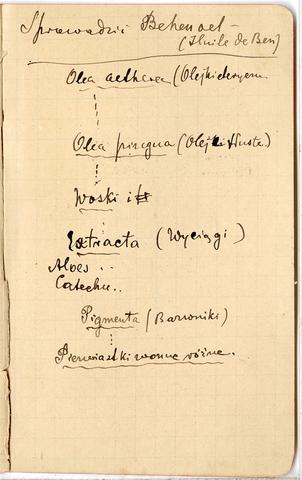 Sprowadzić Behenoel -
(Huile de Ben)
Olea aetherea (Olejki eteryczn
Olea pingua (Olejki tłuste.)
Woski i
Extracta (Wyciągi)
Aloes ..
Catechu..
Pigmenta (Barwniki)
Pierwiastki wonne różne.